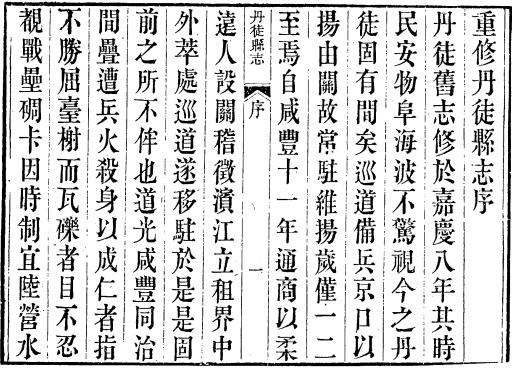 重修丹徒縣志序
丹徒舊志修於嘉慶八年其時
民安物阜海波不驚視今之丹
徒固有間矣巡道備兵京口以
揚由關故常駐維揚歲僅一二
至焉自咸豐十一年通商以柔
丹徒縣志
序
一
遠人設關稽徵濱江立租界中
外萃處巡道遂移駐於是是固
前之所不侔也道光咸豐同治
間疊遭兵火殺身以成仁者指
不勝屈臺榭而瓦礫者目不忍
覩戰壘碉卡因時制宜陸營水